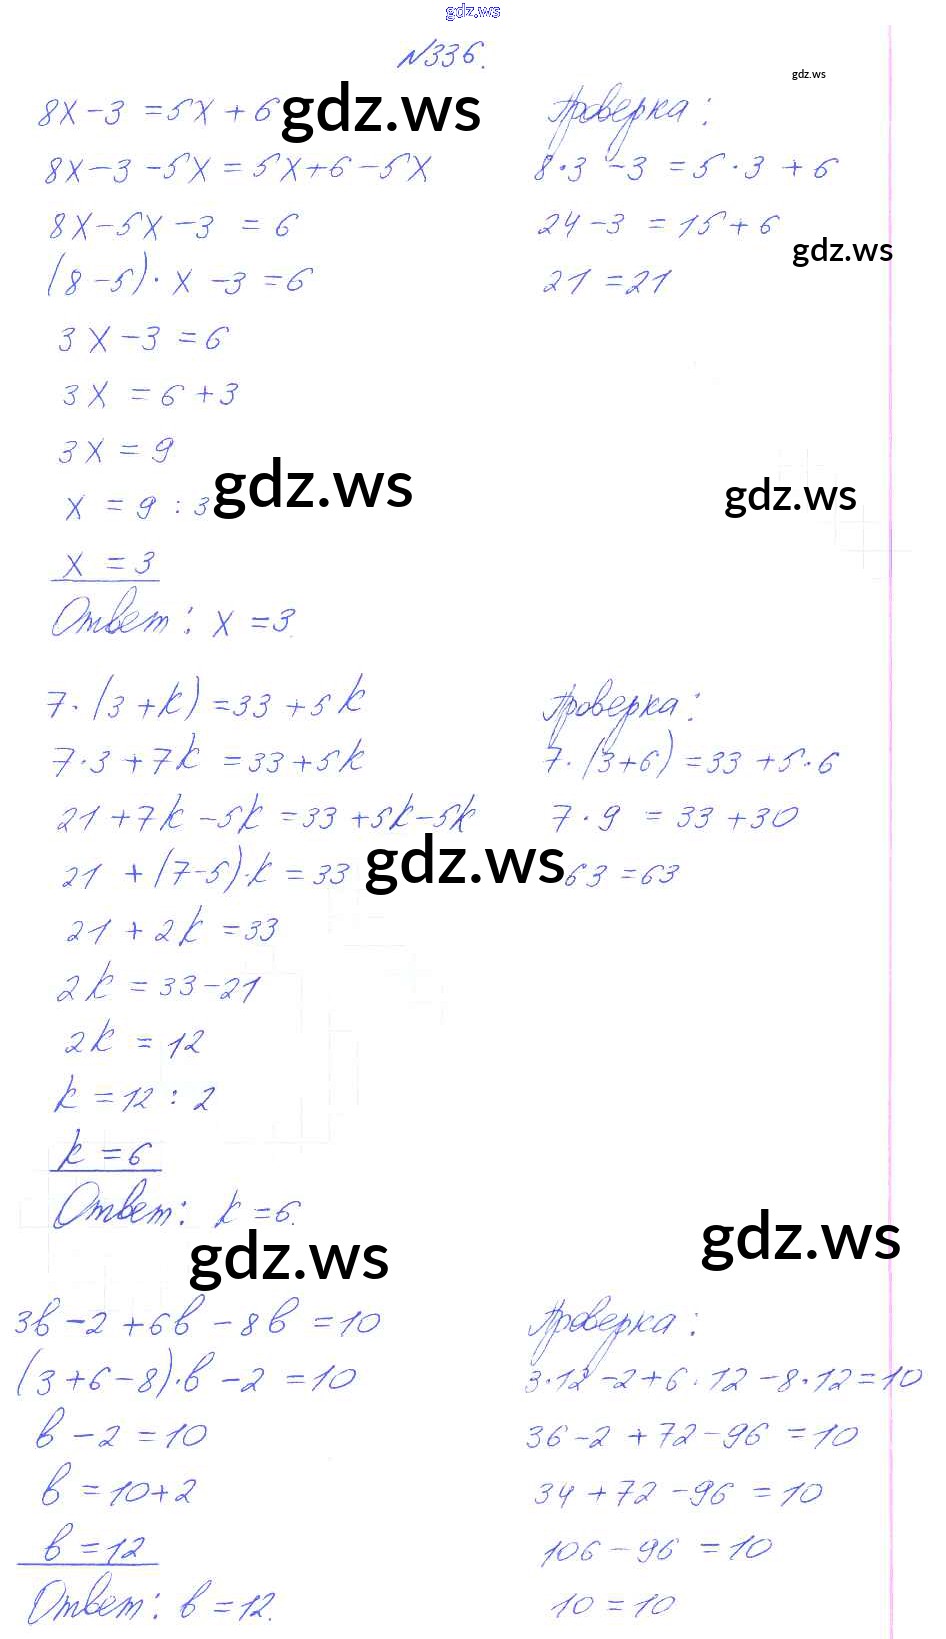 gdz.ws
№336.
gdz.ws
8x-3 =5x+6
gdz.ws
8x-3-5x=5x+6-5x
8x-5x-3 =6
(8-5)·x-3=6
3x-3=6
3x=6+3
3x=9
x=9:3
gdz.ws
x=3
Ответ: x=3.
Проверка:
8·3-3=5·3+6
24-3=15+6
gdz.ws
21=21
gdz.ws
7·(3+k)=33+5k
7·3+7k=33+5k
21+7k-5k=33+5k-5k
21+(7-5)·k=33
gdz.ws
21+2k=33
2k=33-21
2k=12
k=12:2
k=6
Ответ: k=6.
gdz.ws
Проверка:
7·(3+6)=33+5·6
7·9=33+30
63=63
gdz.ws
3b-2+6b-8b=10
(3+6-8)·b-2=10
b-2=10
b=10+2
b=12
Ответ: b=12.
Проверка:
3·12-2+6·12-8·12=10
36-2+72-96=10
34+72-96=10
106-96=10
10=10